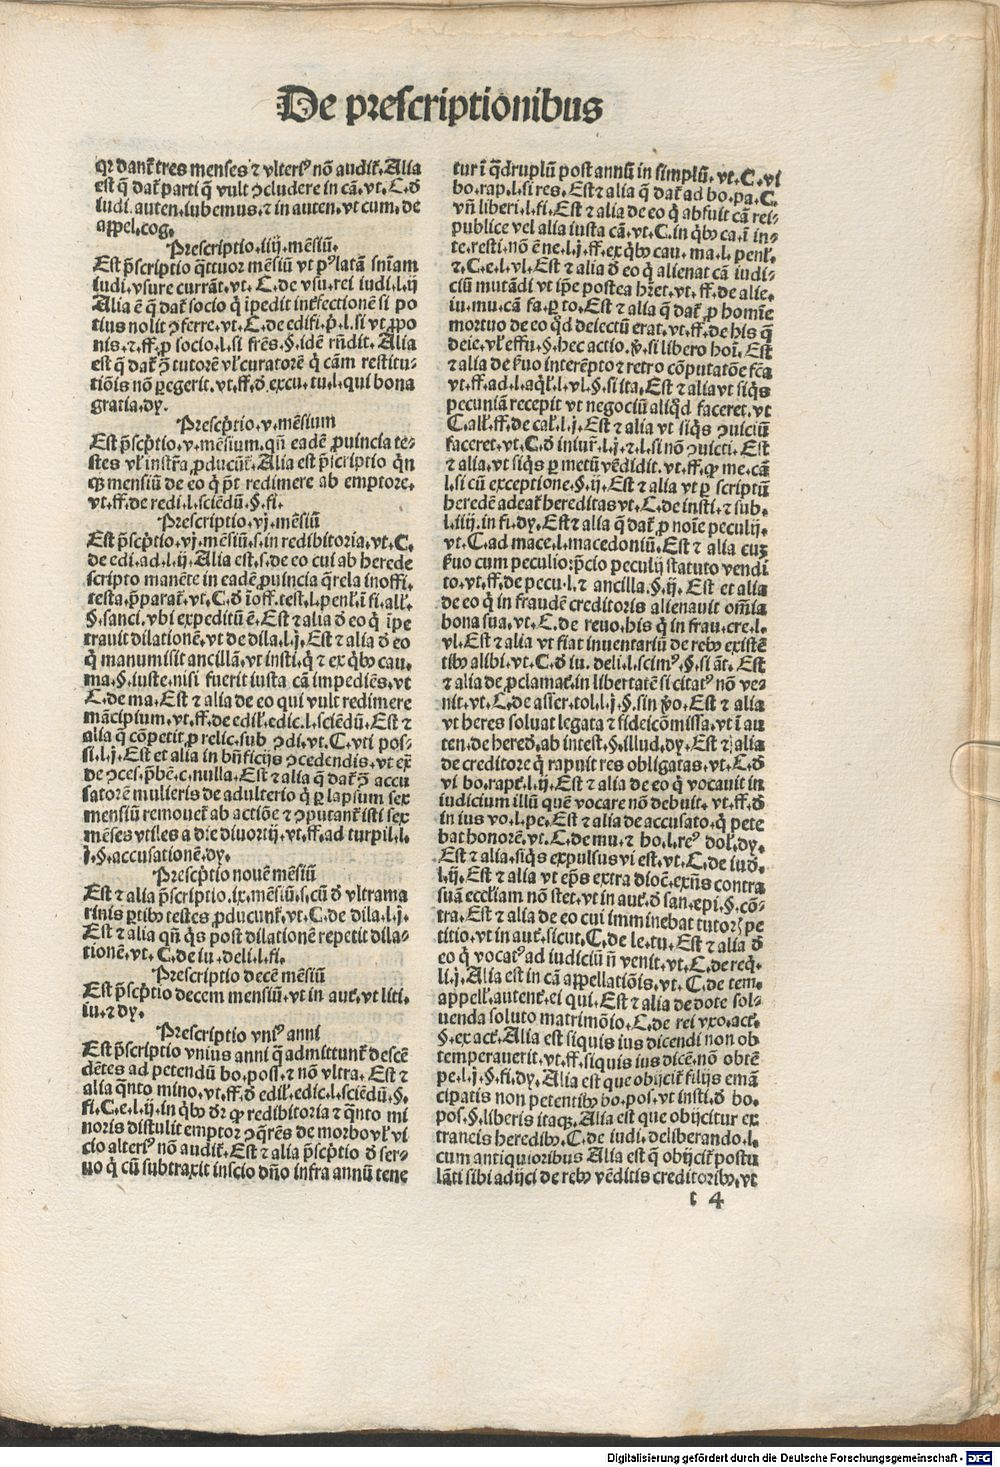 De prescriptionibus
qꝛ dant᷑ tres menses ⁊ vlteriꝰ nõ audit᷑. Alia
est q̃ dat᷑ parti q̃ vult ꝯcludere in cã. vt. C. ð
iudi. auten. iubemus. ⁊ in auten. vt cum. de
appel. cog.
Prescriptio. iiij. mẽsiũ.
Est p̃scriptio q̃ttuor mẽsiũ vt pꝰ latã sniam
iudi. vsure currãt. vt. C. de vsu. rei iudi. l. ij
Alia ẽ q̃ dat᷑ socio q̃ ĩpedit int᷑fectionẽ si po
tius nolit ꝯferre. vt. C. de edifi. p̃. l. si vt ꝓpo
nis. ⁊. ff. ꝓ socio. l. si frẽs. §. idẽ rñdit. Alia
est q̃ dat᷑ ꝯ̃ tutorẽ vl᷑ curatorẽ q̃ cãm restitu⸗
tiõis nõ ꝑegerit. vt. ff. ð excu. tu. l. qui bona
gratia. dy.
Prescp̃tio. v. mẽsium
Est p̃scp̃tio. v. mẽsium. qñ eadẽ ꝓuincia te⸗
stes vl᷑ instr̃a ꝓducũt᷑. Alia est p̃scriptio q̃n
qꝫ mensiũ de eo q̃ p̃t redimere ab emptore.
vt. ff. de redi. l. sciẽdũ. §. fi.
Prescriptio. vj. mẽsiũ
Est p̃scp̃tio. vj. mẽsiũ. s. in redibitoria. vt. C.
de edi. ad. l. ij. Alia est. s. de eo cui ab herede
scripto manẽte in eadẽ ꝓuincia q̃rela inoffi.
testa. p̃parat᷑. vt. C. ð ĩoff. test. l. penl᷑. ĩ fi. all᷑.
§. sanci. vbi expeditũ ẽ. Est ⁊ alia ð eo q̃ ĩpe
trauit dilationẽ. vt de dila. l. j. Est ⁊ alia ð eo
q̃ manumisit ancillã. vt insti. q̃ ⁊ ex q̃bꝰ cau.
ma. §. iuste. nisi fuerit iusta cã impediẽs. vt
C. de ma. Est ⁊ alia de eo qui vult redimere
mãcipium. vt. ff. de edil᷑. edic. l. sciẽdũ. Est ⁊
alia q̃ cõpetit ꝓ relic. sub ꝯdi. vt. C. vti pos⸗
si. l. j. Est et alia in bñficijs ꝯcedendis. vt ex̃
de ꝯces. p̃bẽ. c. nulla. Est ⁊ alia q̃ dat᷑ ꝯ̃ accu
satorẽ mulieris de adulterio q̃ ꝑ lapsum sex
mensiũ remouet᷑ ab actiõe ⁊ ꝯputant᷑ isti sex
mẽses vtiles a die diuortij. vt. ff. ad turpil. l.
j. §. accusationẽ. dy.
Prescp̃tio nouẽ mẽsiũ
Est ⁊ alia p̃scriptio. ix. mẽsiũ. s. cũ ð vltrama
rinis ꝑtibꝰ testes ꝓducunt᷑. vt. C. de dila. l. j.
Est ⁊ alia qñ q̃s post dilationẽ repetit dila⸗
tionẽ. vt. C. de iu. deli. l. fi.
Prescriptio decẽ mẽsiũ
Est p̃scp̃tio decem mensiũ. vt in aut᷑. vt liti.
iu. ⁊ dy.
Prescriptio vniꝰ anni
Est p̃scriptio vnius anni q̃ admittunt᷑ descẽ
dẽtes ad petendũ bo. poss. ⁊ nõ vltra. Est ⁊
alia q̃nto mino. vt. ff. ð edil᷑. edic. l. sciẽdũ. §.
fi. C. e. l. ij. in q̃bꝰ ðr qꝛ redibitoria ⁊ q̃nto mi
noris distulit emptor ꝯq̃rẽs de morbo vl᷑ vi
cio alteriꝰ nõ audit᷑. Est ⁊ alia p̃scp̃tio ð ser⸗
uo q̃ cũ subtraxit inscio dño infra annũ tene
tur ĩ q̃druplũ post annũ in simplũ. vt. C. vi
bo. rap. l. si res. Est ⁊ alia q̃ dat᷑ ad bo. pa. C.
vñ liberi. l. fi. Est ⁊ alia de eo q̃ abfuit cã rei⸗
publice vel alia iusta cã. vt. C. in q̃bꝰ ca. ĩ in⸗
te. resti. nõ ẽ ne. l. j. ff. ex q̃bꝰ cau. ma. l. penl᷑.
⁊. C. e. l. vl. Est ⁊ alia ð eo q̃ alienat cã iudi⸗
ciũ mutãdi vt ip̃e postea hr̃et. vt. ff. de alie.
iu. mu. cã fa. ꝑ to. Est ⁊ alia q̃ dat᷑ ꝓ homĩe
mortuo de eo q̃d deiectũ erat. vt. ff. de his q̃
deie. vl᷑ effu. §. hec actio. ꝟ. si libero hoĩ. Est
⁊ alia de ẜuo interẽpto ⁊ retro cõputatõe fc̃a
vt. ff. ad. l. aq̃l᷑. l. vl. §. si ita. Est ⁊ alia vt siq̃s
pecuniã recepit vt negociũ aliq̃d faceret. vt
C. all᷑. ff. de cal᷑. l. j. Est ⁊ alia vt siq̃s ꝯuiciũ
faceret. vt. C. ð iniur᷑. l. j. ⁊. l. si nõ ꝯuicti. Est
⁊ alia. vt siq̃s ꝑ metũ vẽdidit. vt. ff. qꝛ me. cã
l. si cũ exceptione. §. ij. Est ⁊ alia vt ꝑ scriptũ
heredẽ adeat᷑ hereditas vt. C. de insti. ⁊ sub.
l. iiij. in fi. dy. Est ⁊ alia q̃ dat᷑ ꝓ noĩe peculij.
vt. C. ad mace. l. macedoniũ. Est ⁊ alia cuꝫ
ẜuo cum peculio: p̃cio peculij statuto vendĩ
to. vt. ff. de pecu. l. ⁊ ancilla. §. ij. Est et alia
de eo q̃ in fraudẽ creditoris alienauit om̃ia
bona sua. vt. C. de reuo. his q̃ in frau. cre. l.
vl. Est ⁊ alia vt fiat inuentariũ de rebꝰ existẽ
tibꝰ alibi. vt. C. ð iu. deli. l. scimꝰ. §. si ãt. Est
⁊ alia de ꝓclamat᷑. in libertatẽ si citatꝰ nõ ve⸗
nit. vt. C. de asser. tol. l. j. §. sin ꝟo. Est ⁊ alia
vt heres soluat legata ⁊ fideicõmissa. vt ĩ au
ten. de hered. ab intest. §. illud. dy. Est ⁊ alia
de creditore q̃ rapuit res obligatas. vt. C. ð
vi bo. rapt᷑. l. ij. Est ⁊ alia de eo q̃ vocauit in
iudicium illũ quẽ vocare nõ debuit. vt. ff. ð
in ius vo. l. pe. Est ⁊ alia de accusato. q̃ pete
bat honorẽ. vt. C. de mu. ⁊ ho. l. reꝰ dol᷑. dy.
Est ⁊ alia. siq̃s expulsus vi est. vt. C. de iud.
l. ij. Est ⁊ alia vt ep̃s extra dioc̃. exñs contra
suã eccl᷑iam nõ stet. vt in aut᷑. ð san. epi. §. cõ⸗
tra. Est ⁊ alia de eo cui imminebat tutorꝫ pe
titio. vt in aut᷑. sicut. C. de le. tu. Est ⁊ alia ð
eo q̃ vocatꝰ ad iudiciũ ñ venit. vt. C. de req̃.
li. j. Alia est in cã appellatiõis. vt. C. de tem.
appell᷑. autent᷑. ei qui. Est ⁊ alia de dote sol⸗
uenda soluto matrimõio. C. de rei vxo. act᷑.
§. ex act᷑. Alia est siquis ius dicendi non ob
temperauerit. vt. ff. siquis ius dicẽ. nõ obtẽ
pe. l. j. §. fi. dy. Alia est que obijcit᷑ filijs emã
cipatis non petentibꝰ bo. pos. vt insti. ð bo.
pos. §. liberis itaqꝫ. Alia est que obijcitur ex
traneis heredibꝰ. C. de iudi. deliberando. l.
cum antiquioribus Alia est q̃ obijcit᷑ postu
lãti sibi adijci de rebꝰ vẽditis creditoribꝰ. vt
t 4
Digitalisierung gefördert durch die Deutsche Forschungsgemeinschaft - DFG